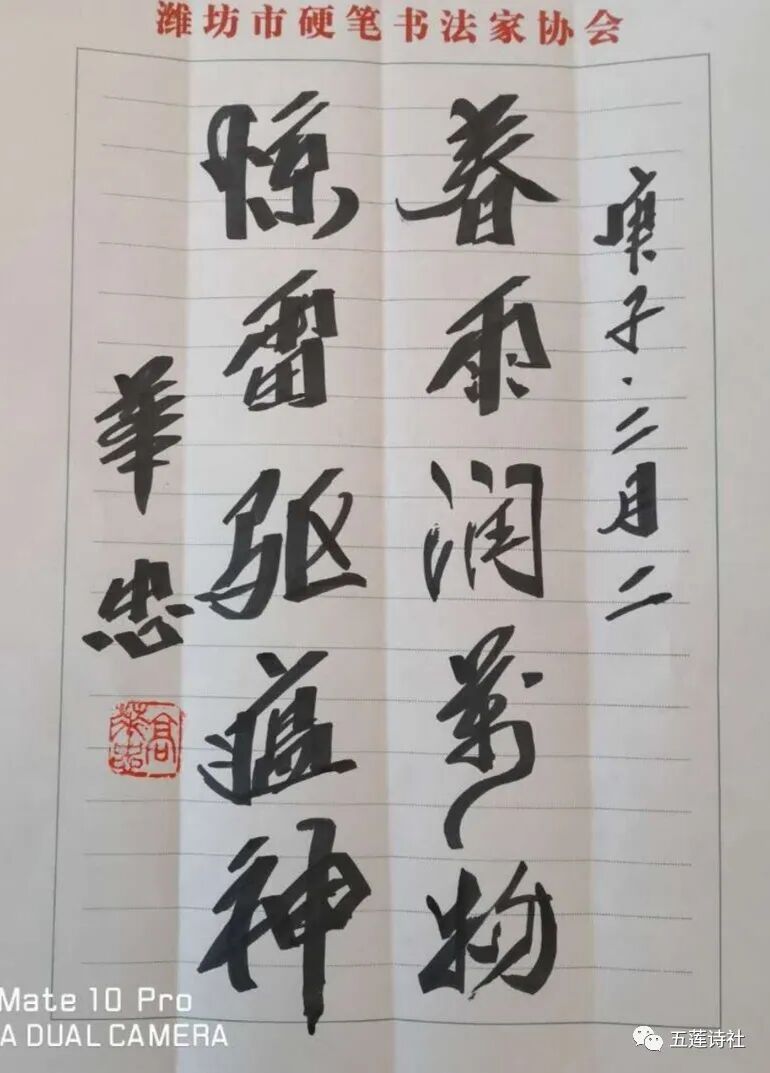 潍坊市硬笔书法家协会
庚子·二月二
春雨润萬物
惊雷驱瘟神
華忠
高華忠
Mate 10 Pro
A DUAL CAMERA
五莲诗社